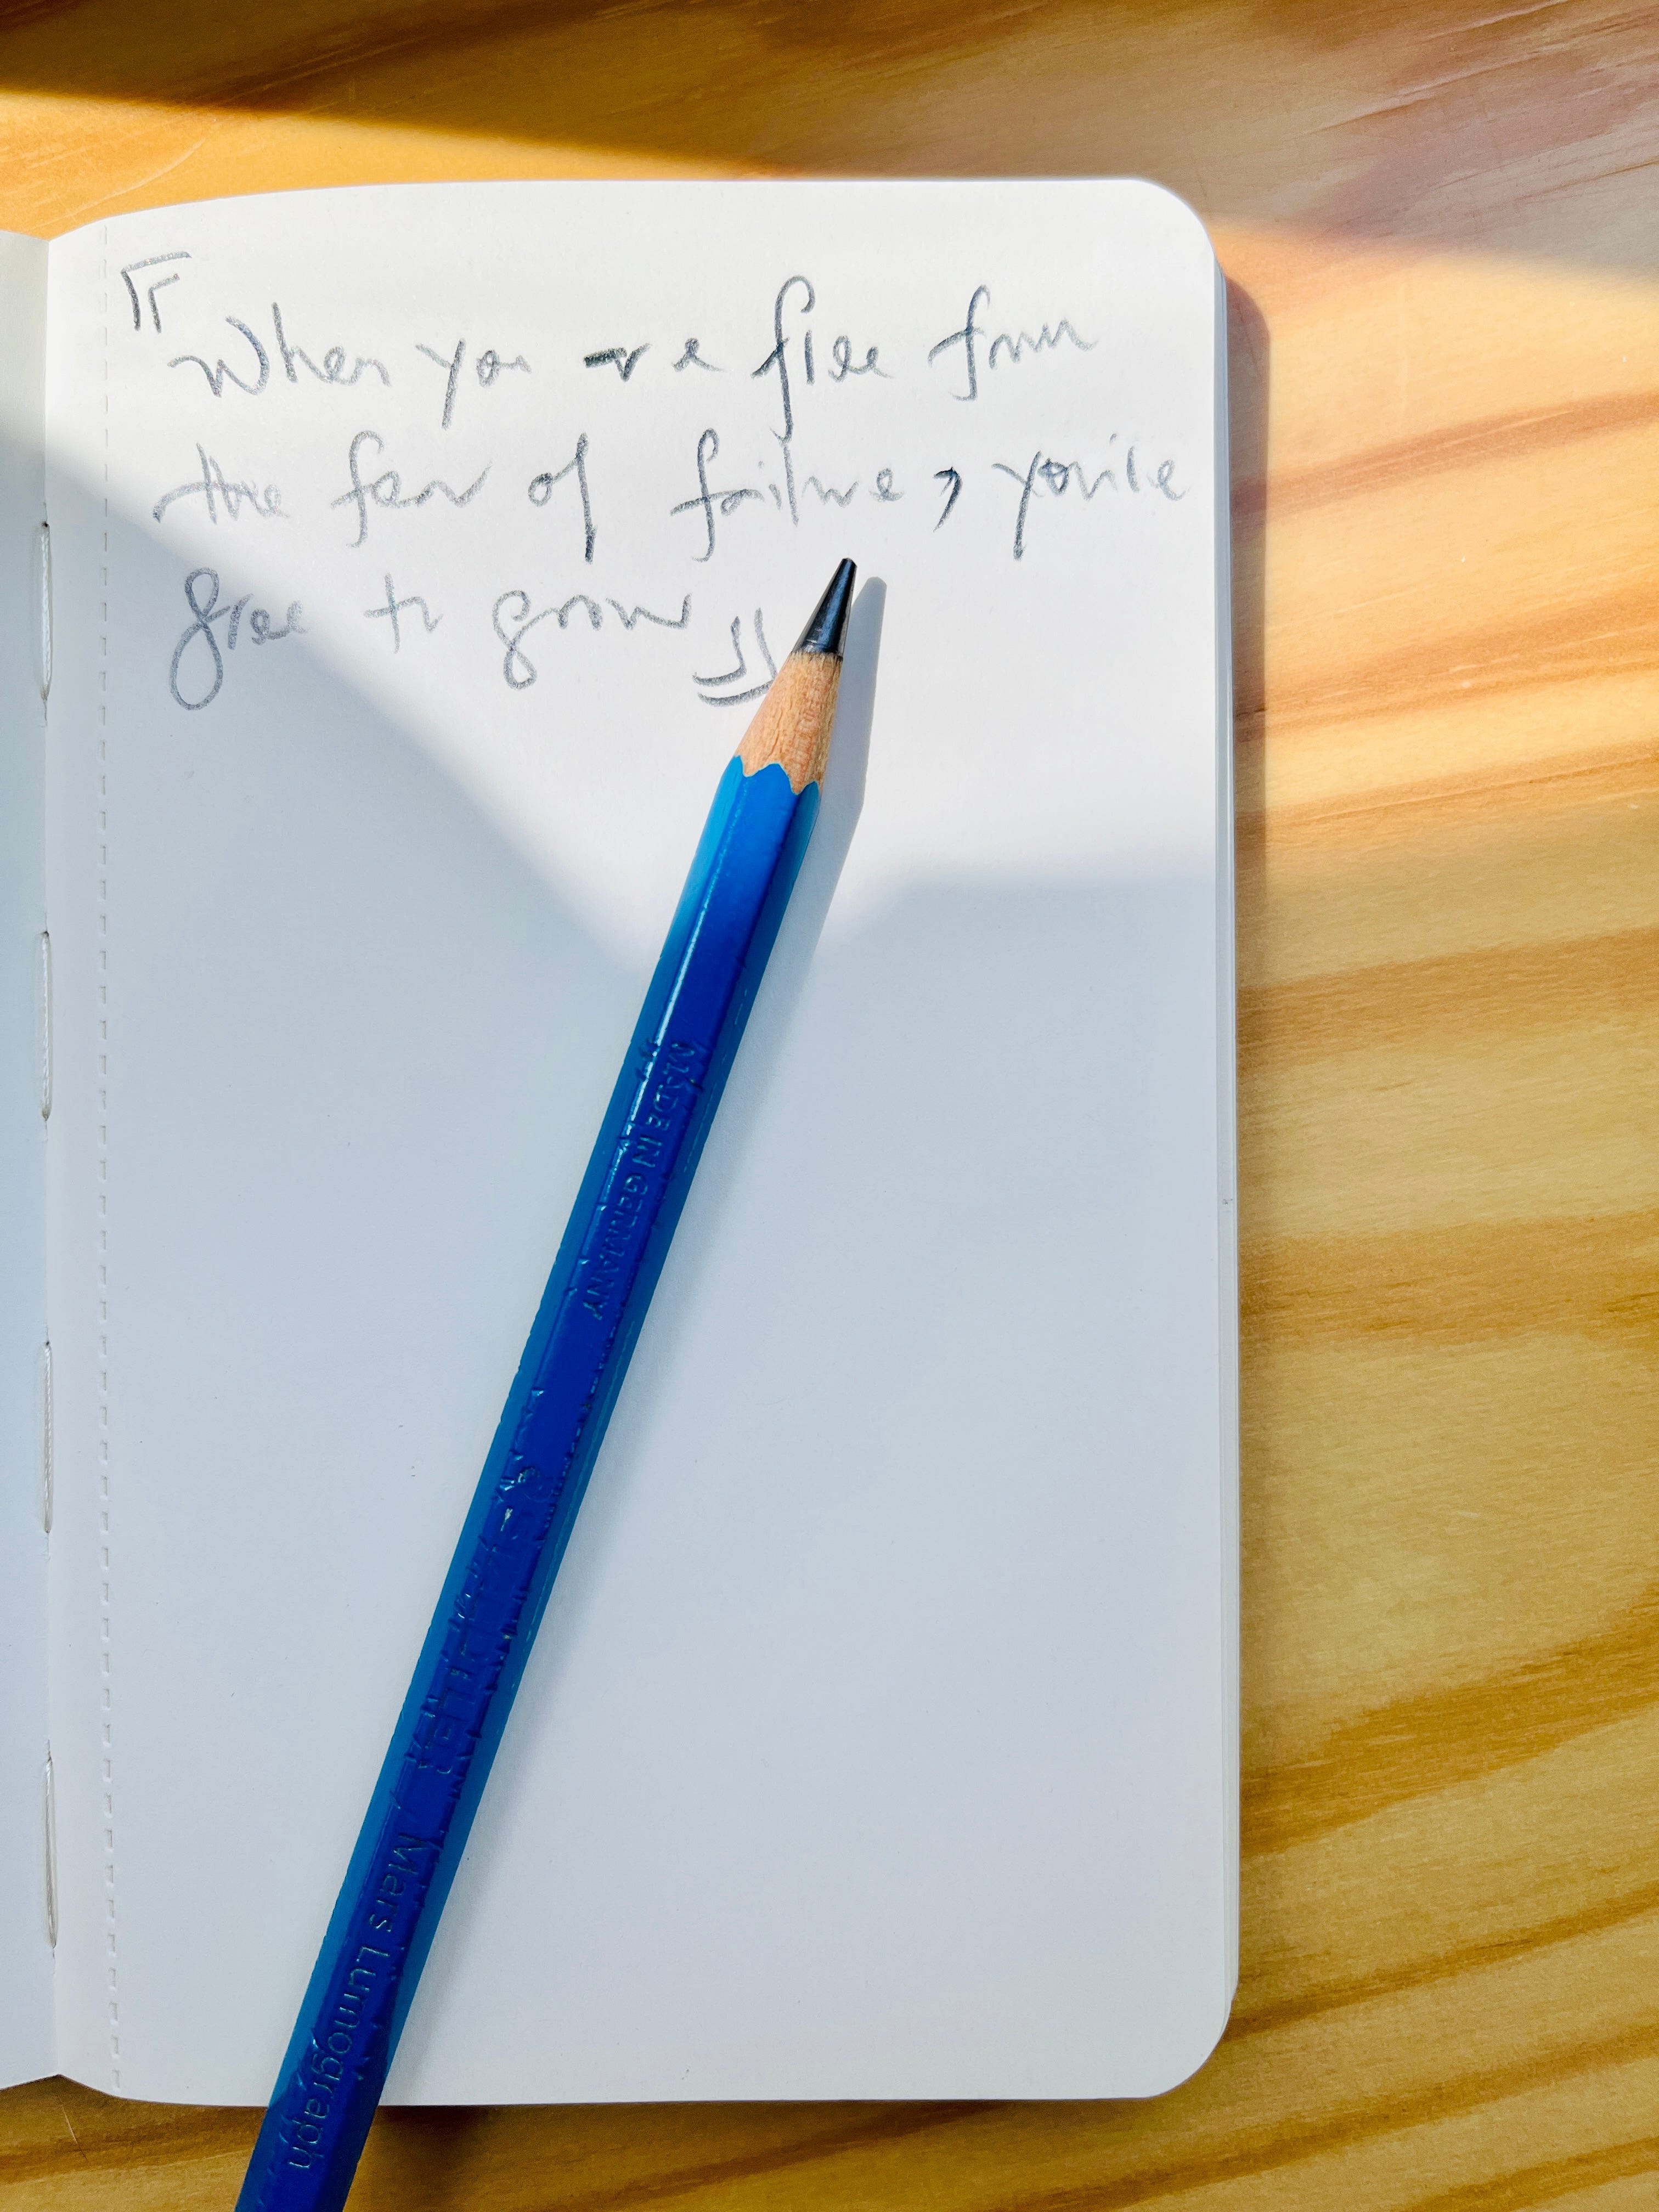 『When you are free from
the fear of failure, you're
free to grow』
MADE IN GERMANY
STAEDTLER Mars Lumograph